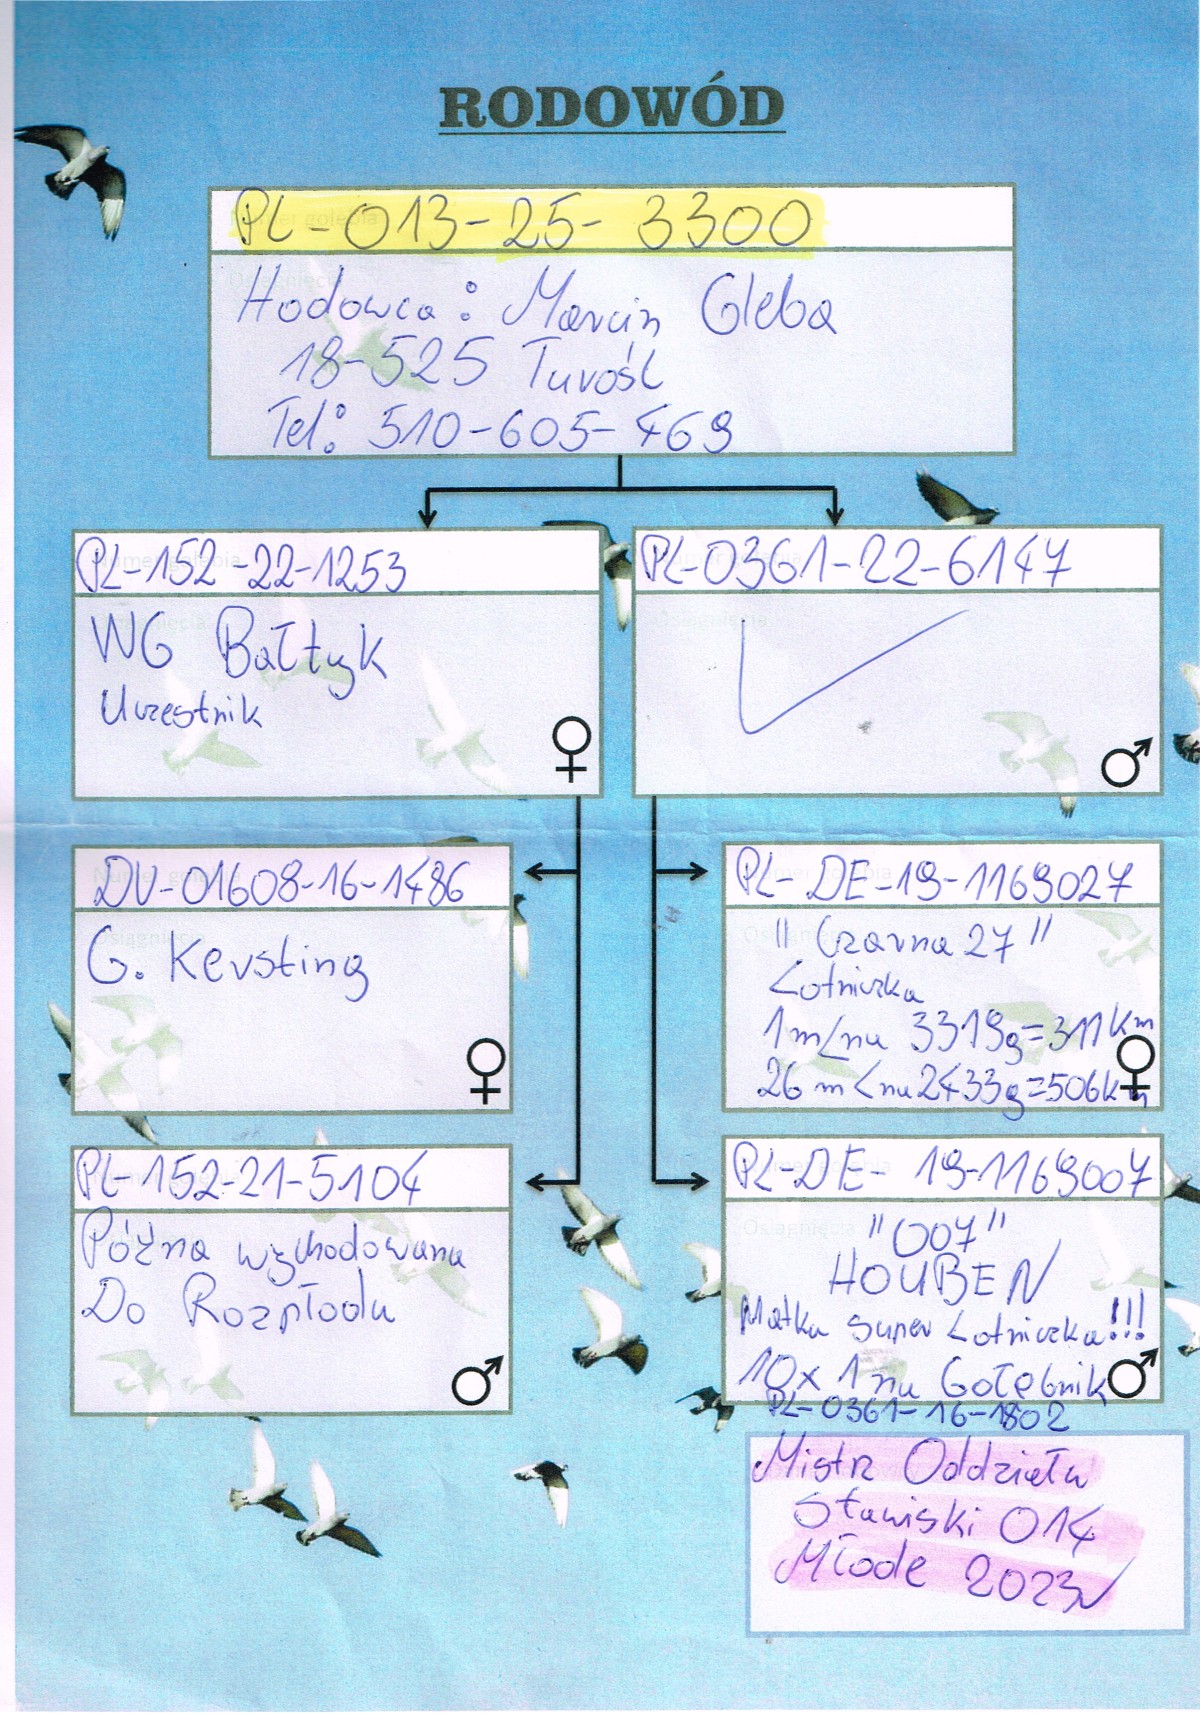 RODOWÓD
PL-013-25-3300
Hodowca: Marcin Gleba
18-525 Turośl
Tel: 510-605-469
PL-152-22-1253
WG Bałtyk
Uczestnik
PL-0361-22-6147
DV-01608-16-1486
G. Kersting
PL-DE-19-1169027
"Czarna 27"
Lotniczka
1 m/na 3319g=311km
26 m/na 2433g=506km
PL-152-21-5104
Późna wychodowana
Do Rozpłodu
PL-DE-19-1169007
"007"
HOUBEN
Matka super Lotniczka!!!
10x 1 na Gołębnik
PL-0361-16-1802
Mistrz Oddziału
Stawiski 014
Młode 2023